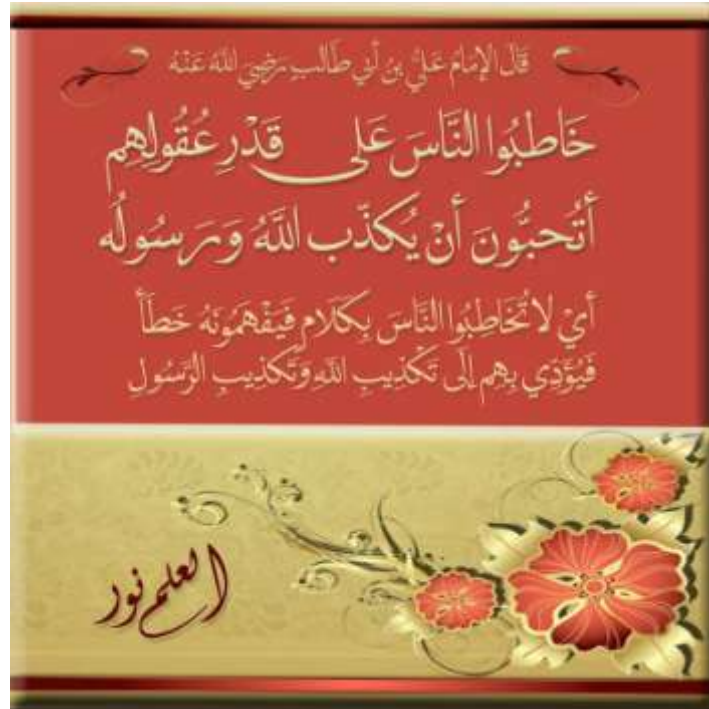 قَالَ الإِمَامُ عَلِيُّ بنُ أَبِي طَالِبٍ رَضِيَ اللَّهُ عَنْهُ
خَاطِبُوا النَّاسَ عَلى قَدْرِ عُقُولِهِم
أَتُحبُّونَ أَنْ يُكذّب اللَّهُ وَرَسُولُه
أَيْ لاَ تُخَاطِبُوا النَّاسَ بِكَلاَمٍ فَيَفْهَمُونَهُ خَطَأً
فَيُؤَدِّي بِهِم إِلَى تَكْذِيبِ اللَّهِ وَتَكْذِيبِ الرَّسُولِ
العلم نور